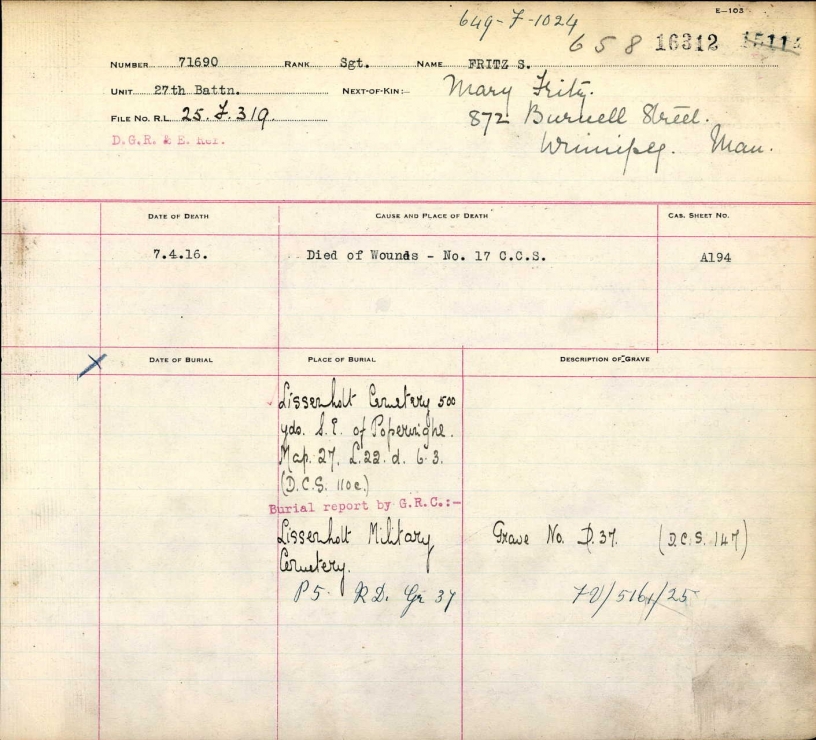 E—103
649-F-1024
658 16312 15114
NUMBER 71690 RANK Sgt. NAME FRITZ S.
UNIT 27th Battn. NEXT-OF-KIN:— Mary Fritz.
FILE NO. R.L. 25.F.319. 872 Burnell Street.
D.G.R. & E. Ref. Winnipeg. Man.
DATE OF DEATH CAUSE AND PLACE OF DEATH CAS. SHEET NO.
7.4.16. Died of Wounds - No. 17 C.C.S. A194
DATE OF BURIAL PLACE OF BURIAL DESCRIPTION OF GRAVE
Lissenholt Cemetery 500
yds. S.E. of Poperinghe.
Map. 27. L.22.d. 6.3.
(D.C.S. 110e.)
Burial report by G.R.C.:—
Lissenholt Military Grave No. D.37. (D.C.S. 147)
Cemetery.
P5. R.D. Gr 37